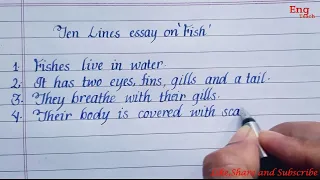 Eng
Teach
Ten Lines essay on 'Fish'
1. Fishes live in water.
2. It has two eyes, fins, gills and a tail.
3. They breathe with their gills.
4. Their body is covered with sca
Like Share and Subscribe